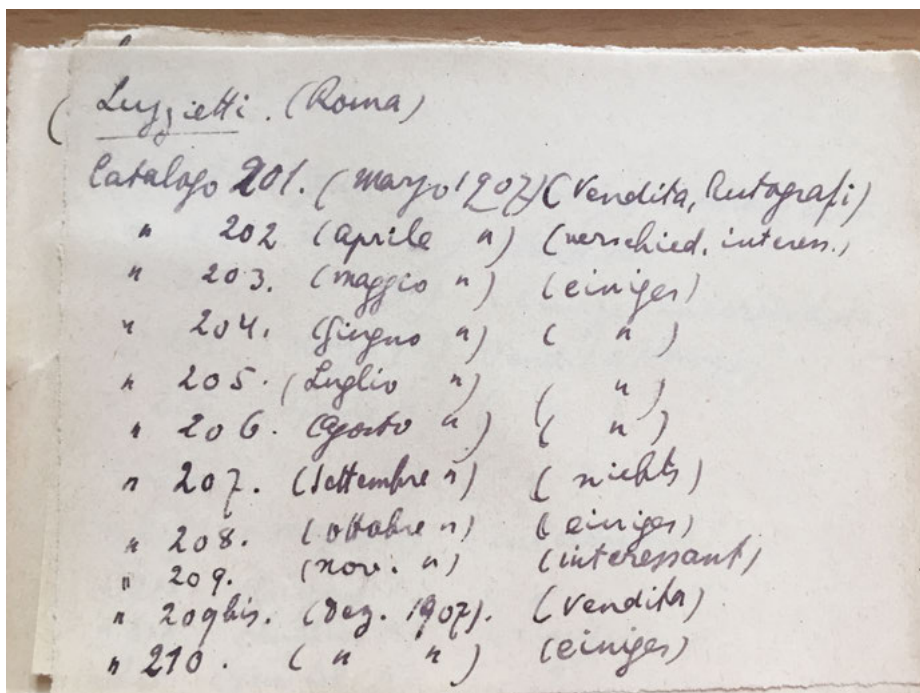 ( Luzzietti. (Roma)
Catalogo 201. (marzo 1907) (Vendita, Autografi)
" 202 (aprile ") (verschied. interess.)
" 203. (maggio ") (einiges)
" 204. (Giugno ") ( " )
" 205. (Luglio ") ( " )
" 206. (Agosto ") ( " )
" 207. (Settembre ") ( nichts)
" 208. (ottobre ") (einiges)
" 209. (nov. ") (interessant)
" 209bis. (Dez. 1907). (Vendita)
" 210. ( " " ) (einiges)